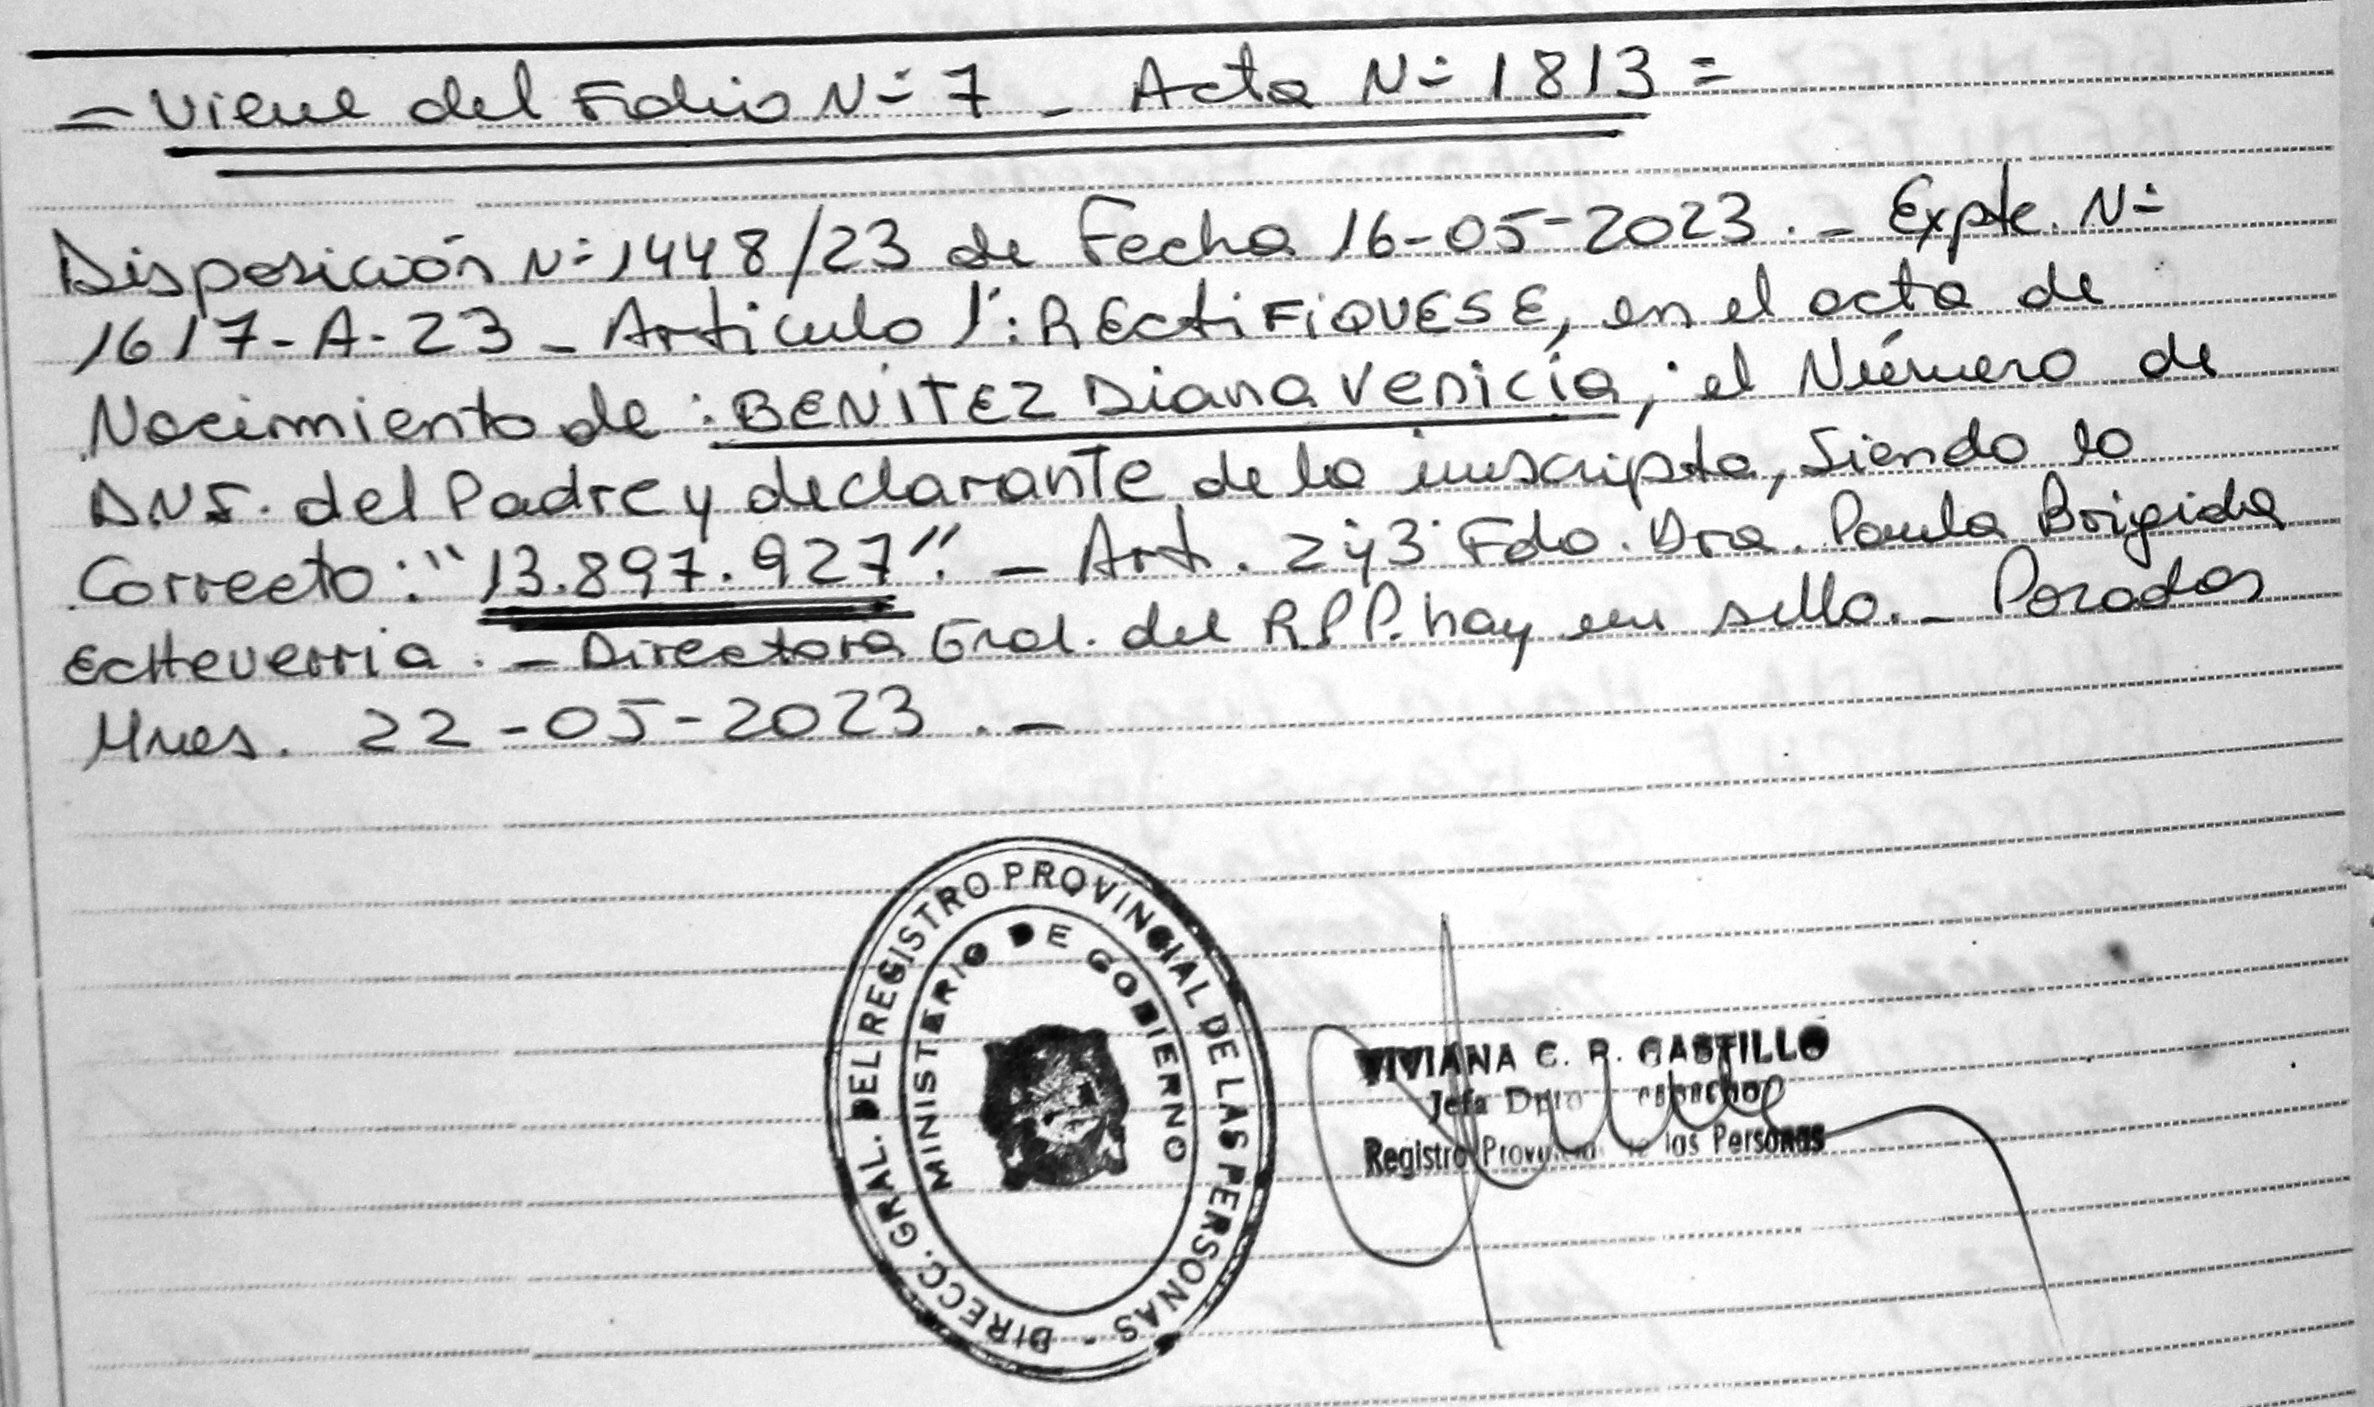 = Viene del Folio Nº 7 - Acta Nº 1813 =
Disposición Nº 1448/23 de Fecha 16-05-2023.- Expte. Nº
1617-A-23 - Articulo 1º: RECtiFiQUESE, en el acta de
Nacimiento de: BENITEZ Diana Venicia; el Número de
DNI. del Padre y declarante de la inscripta, Siendo lo
Correcto: "13.897.927". - Art. 2º y 3º Fdo. Dra. Paula Brigida
Echeverria. - Directora Gral. del R.P.P. hay un sello. - Posadas
Mnes. 22-05-2023.-
DIRECC. GRAL. DEL REGISTRO PROVINCIAL DE LAS PERSONAS -
MINISTERIO DE GOBIERNO
VIVIANA C. R. CASTILLO
Jefa Dpto
Registro Provincial de las Personas